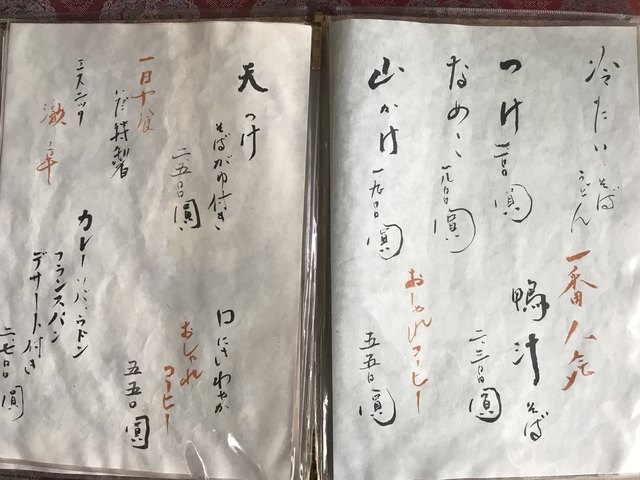 冷たい そば うどん
つけ
圓
なめこ 一八〇〇圓
山かけ 一九〇〇圓
一番人気
鴨汁 そば
二三〇〇圓
おしゃれコーヒー
五五〇圓
天つけ
そばがゆ付き
二五〇〇圓
一日十食
いだ特製
エスニック
激辛
口にさわやか
おしゃれ
コーヒー
五五〇圓
カレーソバ、ウドン
フランスパン
デザート付き
二七〇〇圓